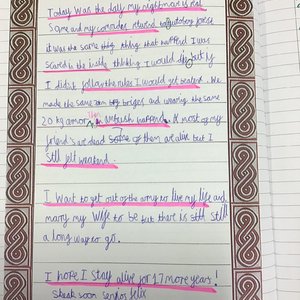 Today was the day my nightmare is real
some and my comrades
it was the same thing thing that happend I was
scared in the thinking I would die but if
I didnt follow the rules I would get beaten. We
made the same and wearing the same
20 kg armor an ambush happend. most of my
friend's are dead some of them are alive but I
still felt weakend.
I want to get out of the army to live my life and
marry my wife to be but there is still still
a long way to go.
I hope I stay alive for 17 more years!
Speak soon